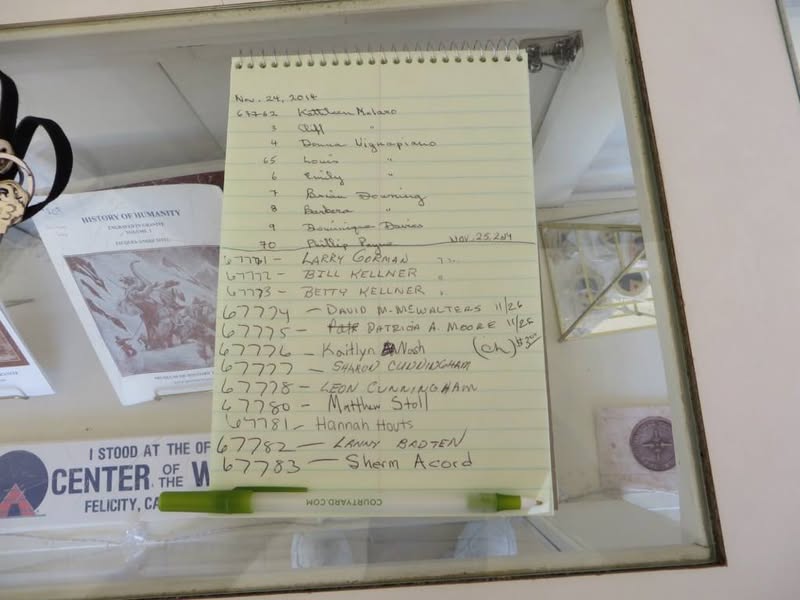 Nov. 24, 2014
67762 Kathleen Molaro
3 Cliff "
4 Donna Vignapiano
65 Louis "
6 Emily "
7 Brian Downing
8 Barbara "
9 Dominique Davies
70 Phillip Payne Nov. 25, 2014
67771 - LARRY GORMAN "
67772 - BILL KELLNER "
67773 - BETTY KELLNER "
67774 - DAVID M. MEWALTERS 11/26
67775 - PATRICIA A. MOORE 11/28
67776 - Kaitlyn Nash (ch)
67777 - SHARON CUNNINGHAM
67778 - LEON CUNNINGHAM
67780 - Matthew Stoll
67781 - Hannah Houts
67782 - LANNY BADTEN
67783 - Sherm Acord
COURTYARD.COM
HISTORY OF HUMANITY
ENGRAVED IN GRANITE
VOLUME I
I STOOD AT THE OF
CENTER OF THE W
FELICITY, CA